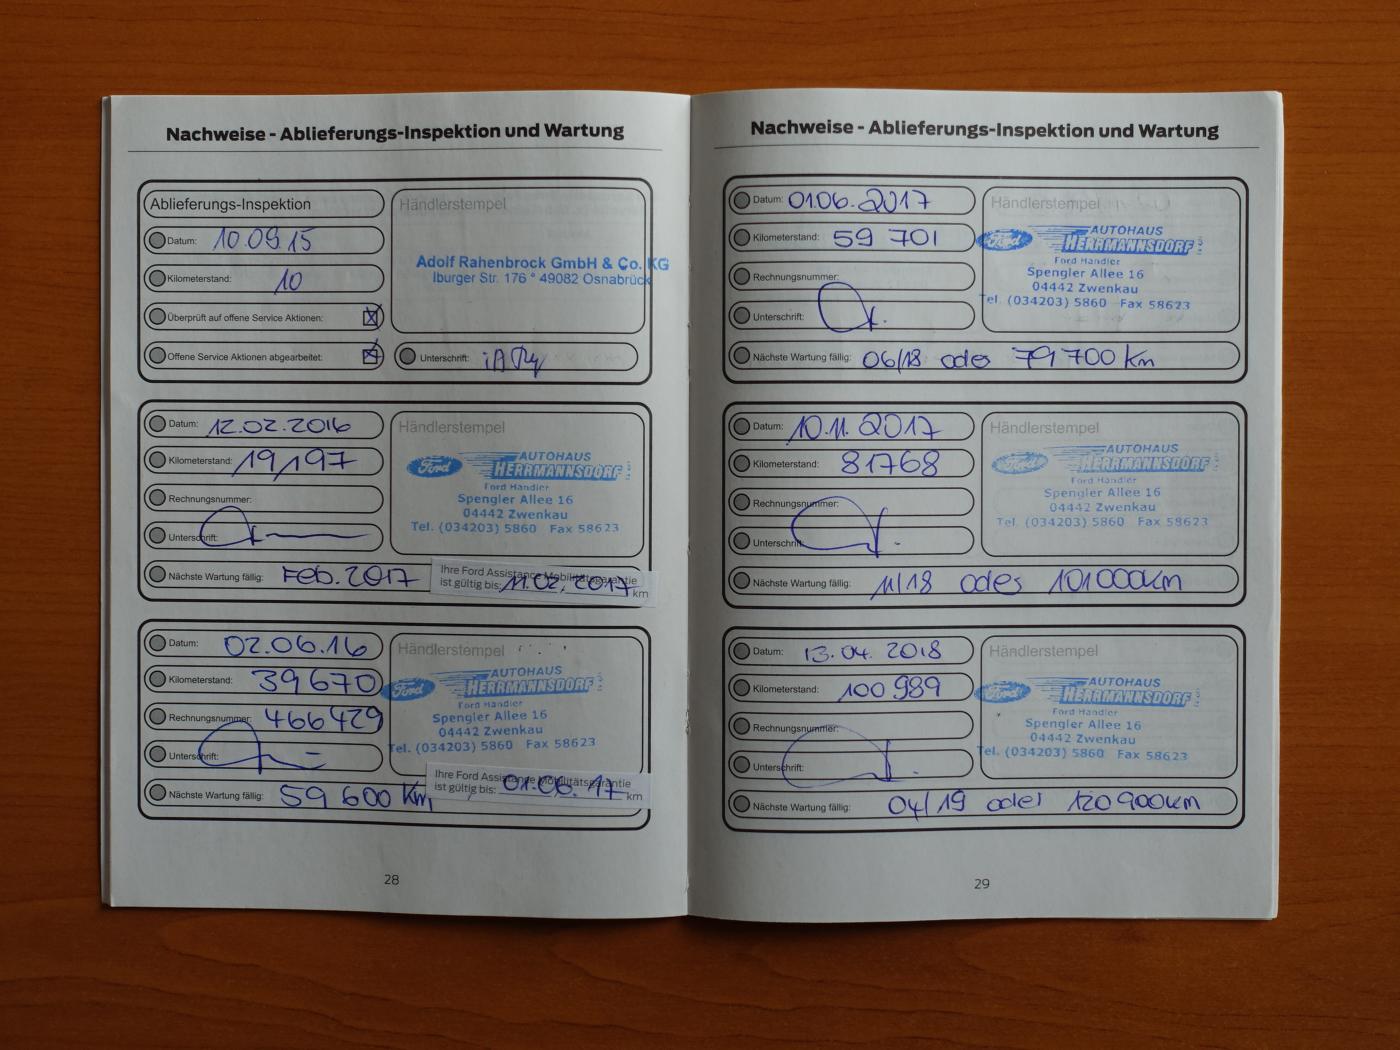 Nachweise - Ablieferungs-Inspektion und Wartung
Ablieferungs-Inspektion
Datum: 10.09.15
Kilometerstand: 10
Überprüft auf offene Service Aktionen: X
Offene Service Aktionen abgearbeitet: X
Händlerstempel
Adolf Rahenbrock GmbH & Co. KG
Iburger Str. 176 * 49082 Osnabrück
Unterschrift:
Datum: 12.02.2016
Kilometerstand: 19197
Rechnungsnummer:
Unterschrift:
Händlerstempel
Ford AUTOHAUS
HERRMANNSDORF
Ford Händler
Spengler Allee 16
04442 Zwenkau
Tel. (034203) 5860 Fax 58623
Nächste Wartung fällig: Feb. 2017
Ihre Ford Assistance Mobilitätsgarantie
ist gültig bis: 11.02.2017 km
Datum: 02.06.16
Kilometerstand: 39670
Rechnungsnummer: 466429
Unterschrift:
Händlerstempel
Ford AUTOHAUS
HERRMANNSDORF
Ford Händler
Spengler Allee 16
04442 Zwenkau
Tel. (034203) 5860 Fax 58623
Nächste Wartung fällig: 59 600 Km
Ihre Ford Assistance Mobilitätsgarantie
ist gültig bis: 01.06.17 km
28
Nachweise - Ablieferungs-Inspektion und Wartung
Datum: 01.06.2017
Kilometerstand: 59 701
Rechnungsnummer:
Unterschrift:
Händlerstempel
Ford AUTOHAUS
HERRMANNSDORF
Ford Händler
Spengler Allee 16
04442 Zwenkau
Tel. (034203) 5860 Fax 58623
Nächste Wartung fällig: 06/18 oder 79 700 km
Datum: 10.11.2017
Kilometerstand: 81768
Rechnungsnummer:
Unterschrift:
Händlerstempel
Ford AUTOHAUS
HERRMANNSDORF
Ford Händler
Spengler Allee 16
04442 Zwenkau
Tel. (034203) 5860 Fax 58623
Nächste Wartung fällig: 11/18 oder 101000km
Datum: 13.04.2018
Kilometerstand: 100 989
Rechnungsnummer:
Unterschrift:
Händlerstempel
Ford AUTOHAUS
HERRMANNSDORF
Ford Händler
Spengler Allee 16
04442 Zwenkau
Tel. (034203) 5860 Fax 58623
Nächste Wartung fällig: 04/19 oder 120 900km
29